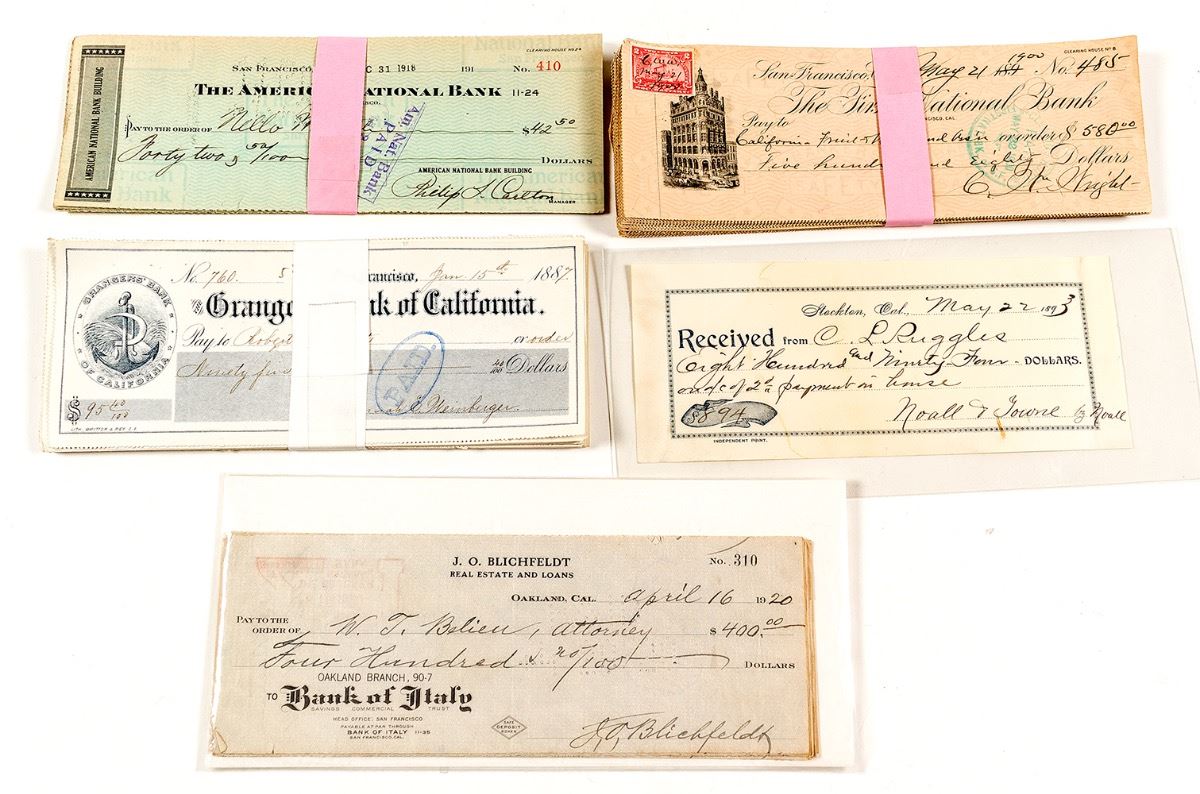 CLEARING HOUSE No 24
SAN FRANCISCO, C 31 1918 191 No. 410
THE AMERIC NATIONAL BANK 11-24
AMERICAN NATIONAL BANK BUILDING
PAY TO THE ORDER OF Nello $42 50
Forty two & 50/100 DOLLARS
Am. Nat. Bank
PAID
AMERICAN NATIONAL BANK BUILDING
Philip S. Carlton
MANAGER
CLEARING HOUSE No 8
San Francisco, May 21 1900 No. 485
The National Bank
Pay to
California Fruit or order $ 580 00
Five hund Eighty Dollars
C. Wm Wright
No. 760 rancisco, Jan. 15th 1887.
Grange k of California.
GRANGERS' BANK OF CALIFORNIA
Pay to Robert or order
Ninety five 40/100 Dollars
PAID.
$ 95 40/100
Weinberger
Stockton, Cal., May 22 1893
Received from C. L. Ruggles
Eight Hundred and Ninty Four - DOLLARS.
on a/c of 2d payment on house
$894
Noall & Towne by Noall
INDEPENDENT PRINT.
J. O. BLICHFELDT No. 310
REAL ESTATE AND LOANS
OAKLAND, CAL. April 16 1920
PAY TO THE
ORDER OF W. T. Belieu, attorney $400.00
Four Hundred & no/100 DOLLARS
OAKLAND BRANCH, 90-7
TO Bank of Italy
SAVINGS COMMERCIAL TRUST
HEAD OFFICE: SAN FRANCISCO
PAYABLE AT PAR THROUGH
BANK OF ITALY 11-35
SAN FRANCISCO, CAL.
SAFE
DEPOSIT
BOXES
J. O. Blichfeldt